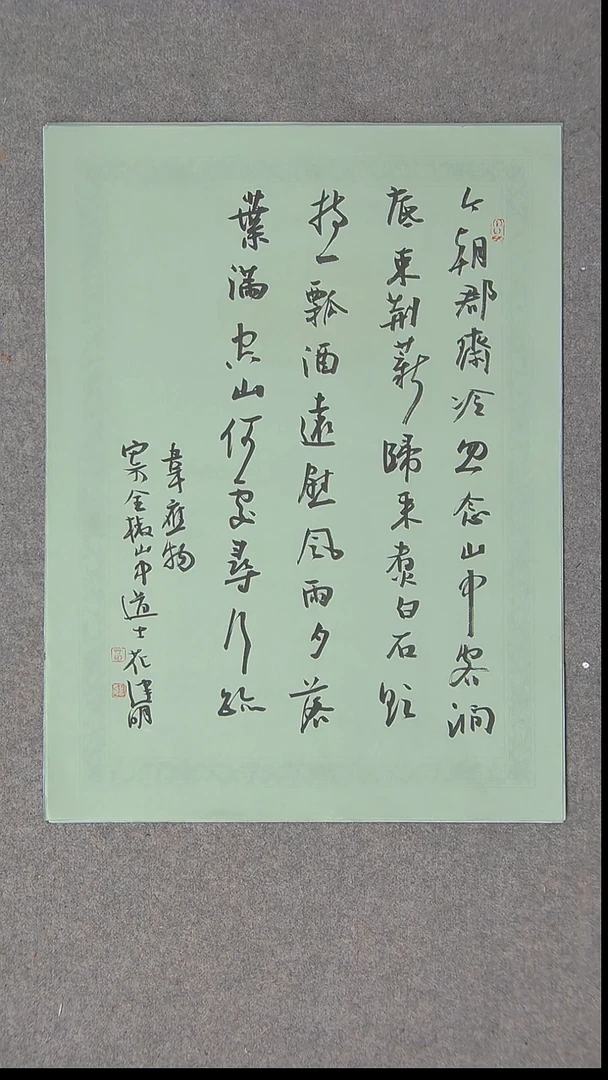 今朝郡齋冷忽念山中客澗
底束荆薪歸来煮白石欲
持一瓢酒遠慰風雨夕落
葉滿空山何處尋行跡
韋應物
寄全椒山中道士花建明